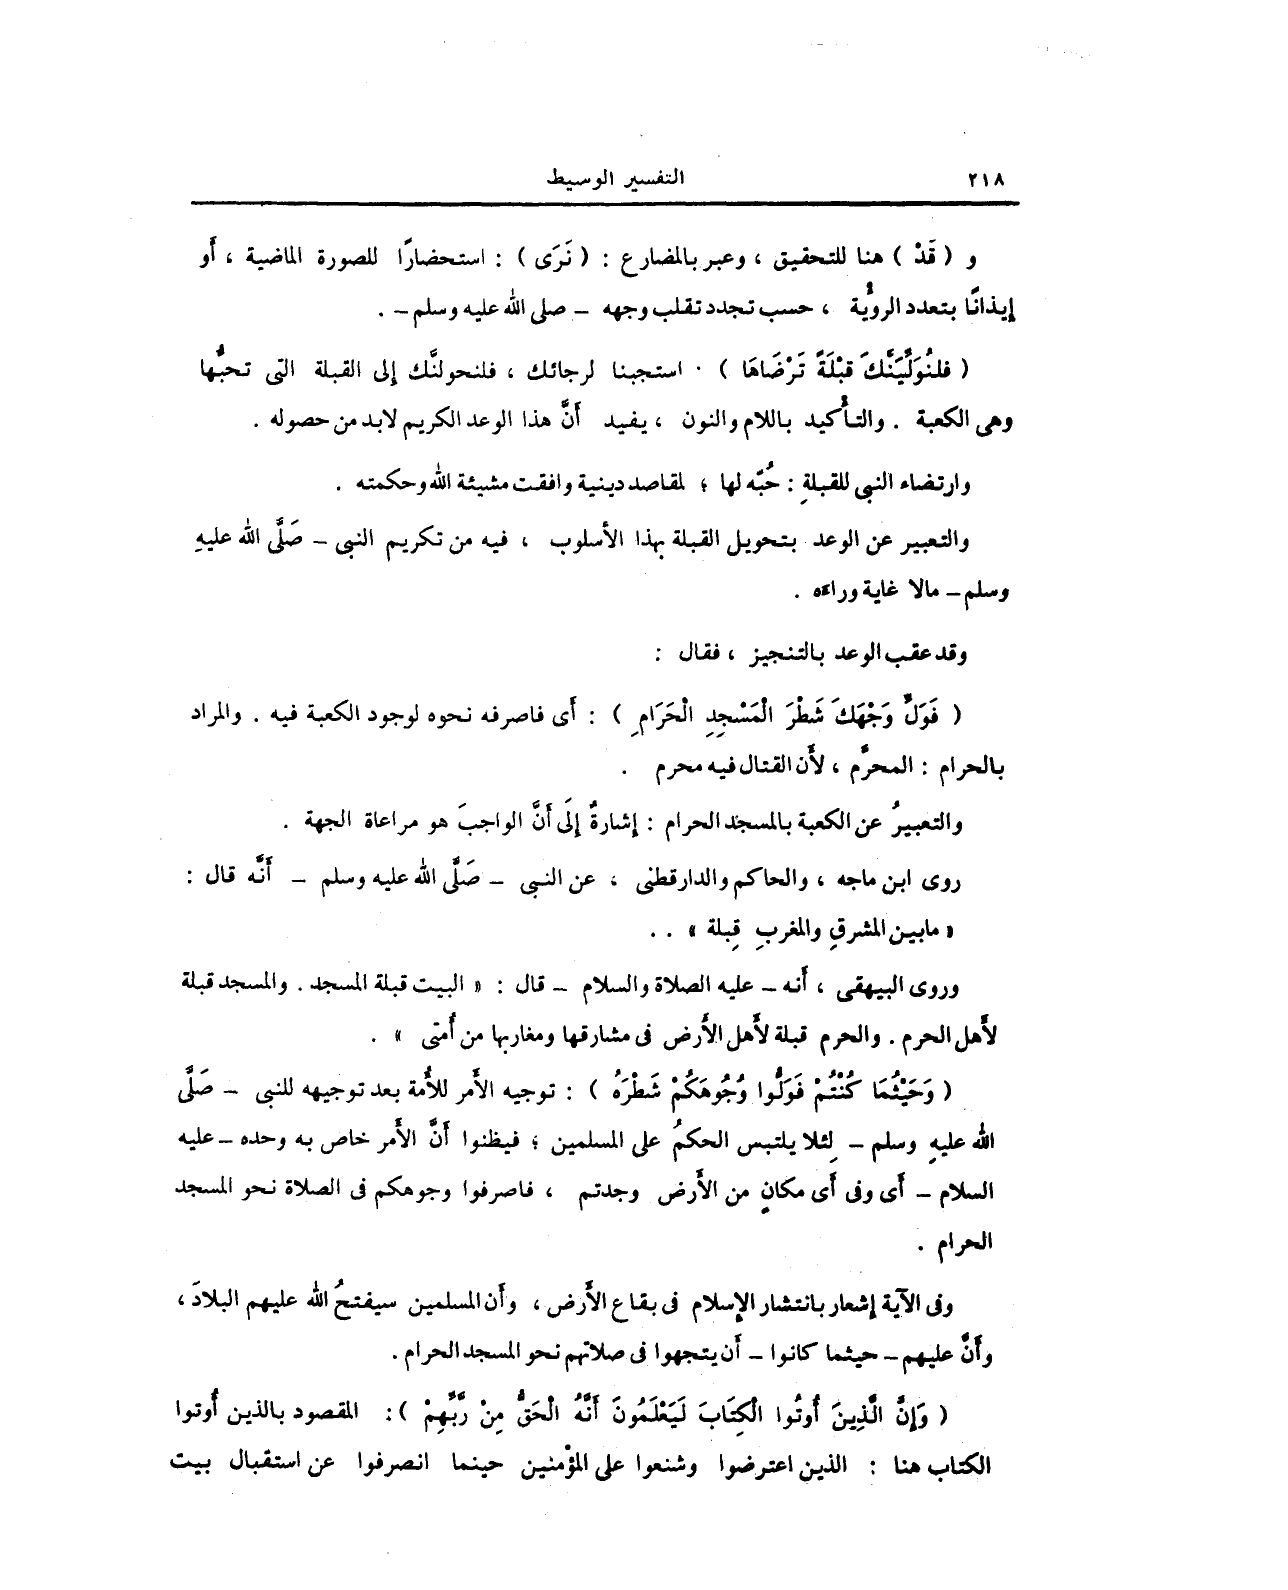 ٢١٨
التفسير الوسيط
و ( قَدْ ) هنا للتحقيق ، وعبر بالمضارع : ( نَرَى ) : استحضارًا للصورة الماضية ، أَو
إيذانًا بتعدد الرؤْية ، حسب تجدد تقلب وجهه – صلى الله عليه وسلم – .
( فلنُوَلِّيَنَّكَ قبْلَةً تَرْضَاهَا ) · استجبنا لرجائك ، فلنحولنَّك إلى القبلة التى تحبُّها
وهى الكعبة . والتأْكيد باللام والنون ، يفيد أَنَّ هذا الوعد الكريم لابد من حصوله .
وارتضاء النبى للقبلةِ : حُبّه لها ؛ لمقاصد دينية وافقت مشيئة الله وحكمته .
والتعبير عن الوعد بتحويل القبلة بهذا الأسلوب ، فيه من تكريم النبى – صَلَّى الله عليهِ
وسلم – مالا غاية وراءه .
وقد عقب الوعد بالتنجيز ، فقال :
( فَوَلِّ وَجْهَكَ شَطْرَ الْمَسْجِدِ الْحَرَامِ ) : أَى فاصرفه نحوه لوجود الكعبة فيه . والمراد
بالحرام : المحرَّم ، لأَن القتال فيه محرم .
والتعبيرُ عن الكعبة بالمسجد الحرام : إشارةٌ إلَى أَنَّ الواجبَ هو مراعاة الجهة .
روى ابن ماجه ، والحاكم والدارقطنى ، عن النبى – صَلَّى الله عليه وسلم – أَنَّه قال :
« مابين المشرقِ والمغربِ قِبلة » . .
وروى البيهقى ، أَنه – عليه الصلاة والسلام – قال : « البيت قبلة المسجد . والمسجد قبلة
لأَهل الحرم . والحرم قبلة لأَهل الأَرض فى مشارقها ومغاربها من أُمتى » .
( وَحَيْثُمَا كُنْتُمْ فَوَلُّوا وُجُوهَكُمْ شَطْرَهُ ) : توجيه الأَمر للأُمة بعد توجيهه للنبى – صَلَّى
الله عليهِ وسلم – لِئلا يلتبس الحكمُ على المسلمين ؛ فيظنوا أَنَّ الأَمر خاص به وحده – عليه
السلام – أَى وفى أَى مكانٍ من الأَرض وجدتم ، فاصرفوا وجوهكم فى الصلاة نحو المسجد
الحرام .
وفى الآية إشعار بانتشار الإسلام فى بقاع الأَرض ، وأَن المسلمين سيفتحُ الله عليهم البلادَ ،
وأَنَّ عليهم – حيثما كانوا – أَن يتجهوا فى صلاتهم نحو المسجد الحرام .
( وَإِنَّ الَّذِينَ أُوتُوا الْكِتَابَ لَيَعْلَمُونَ أَنَّهُ الْحَقُّ مِنْ رَبِّهِمْ ) : المقصود بالذين أُوتوا
الكتاب هنا : الذين اعترضوا وشنعوا على المؤْمنين حينما انصرفوا عن استقبال بيت